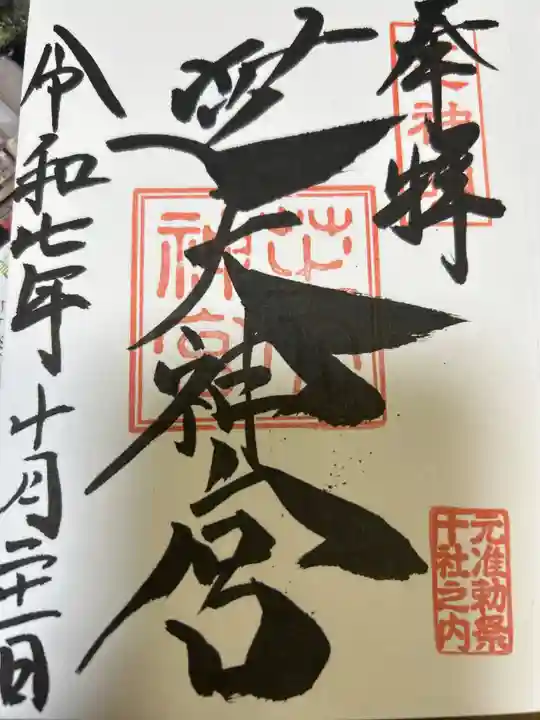 奉拝
芝大神宮
元准勅祭
十社之内
令和七年十月二十一日